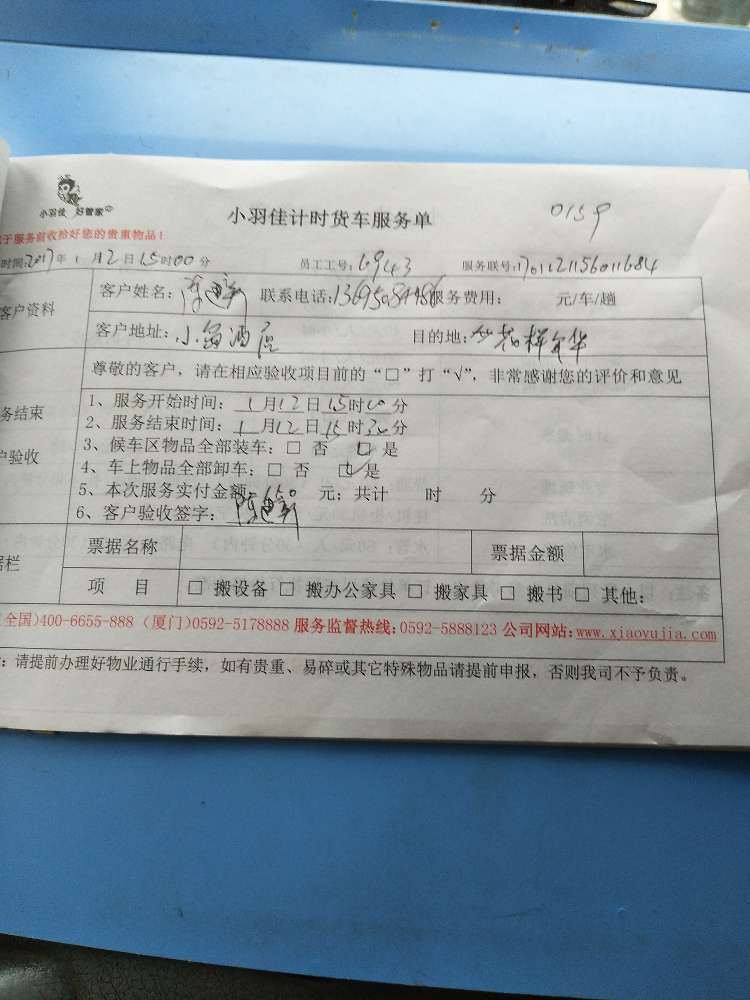 小羽佳 好管家
小羽佳计时货车服务单
0159
于服务前收拾好您的贵重物品!
时间:2017年1月12日15时00分 员工工号:6943 服务联号:170112115601684
客户资料
客户姓名: 联系电话: 服务费用: 元/车/趟
客户地址:小鱼酒店 目的地:
尊敬的客户,请在相应验收项目前的“□”打“√”,非常感谢您的评价和意见
务结束
户验收
1、服务开始时间:1月12日15时00分
2、服务结束时间:1月12日15时30分
3、候车区物品全部装车:□ 否 □ 是
4、车上物品全部卸车:□ 否 □ 是
5、本次服务实付金额 元;共计 时 分
6、客户验收签字:
据栏
票据名称 票据金额
项 目 □ 搬设备 □ 搬办公家具 □ 搬家具 □ 搬书 □ 其他:
(全国)400-6655-888 (厦门)0592-5178888 服务监督热线:0592-5888123 公司网站:www.xiaoyujia.com
:请提前办理好物业通行手续,如有贵重、易碎或其它特殊物品请提前申报,否则我司不予负责。